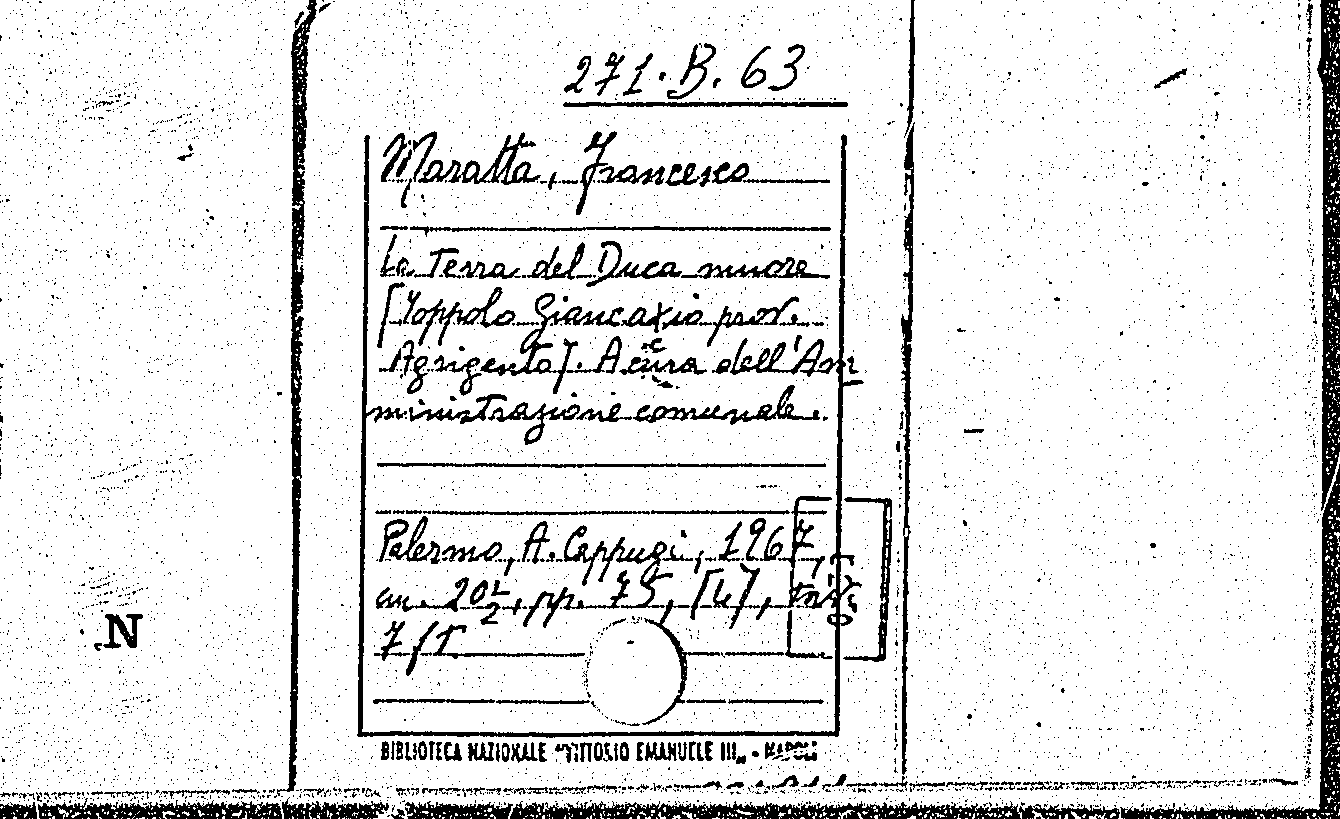 271.B.63
Maratta, Francesco
La Terra del Duca muore
[Joppolo Giancaxio prov.
Agrigento]. A cura dell'Am
ministrazione comunale.
Palermo, A. Cappugi, 1967,
cm. 20 1/2, pp. 75, [4],
N
BIBLIOTECA NAZIONALE "VITTORIO EMANUELE III„ - NAPOLI